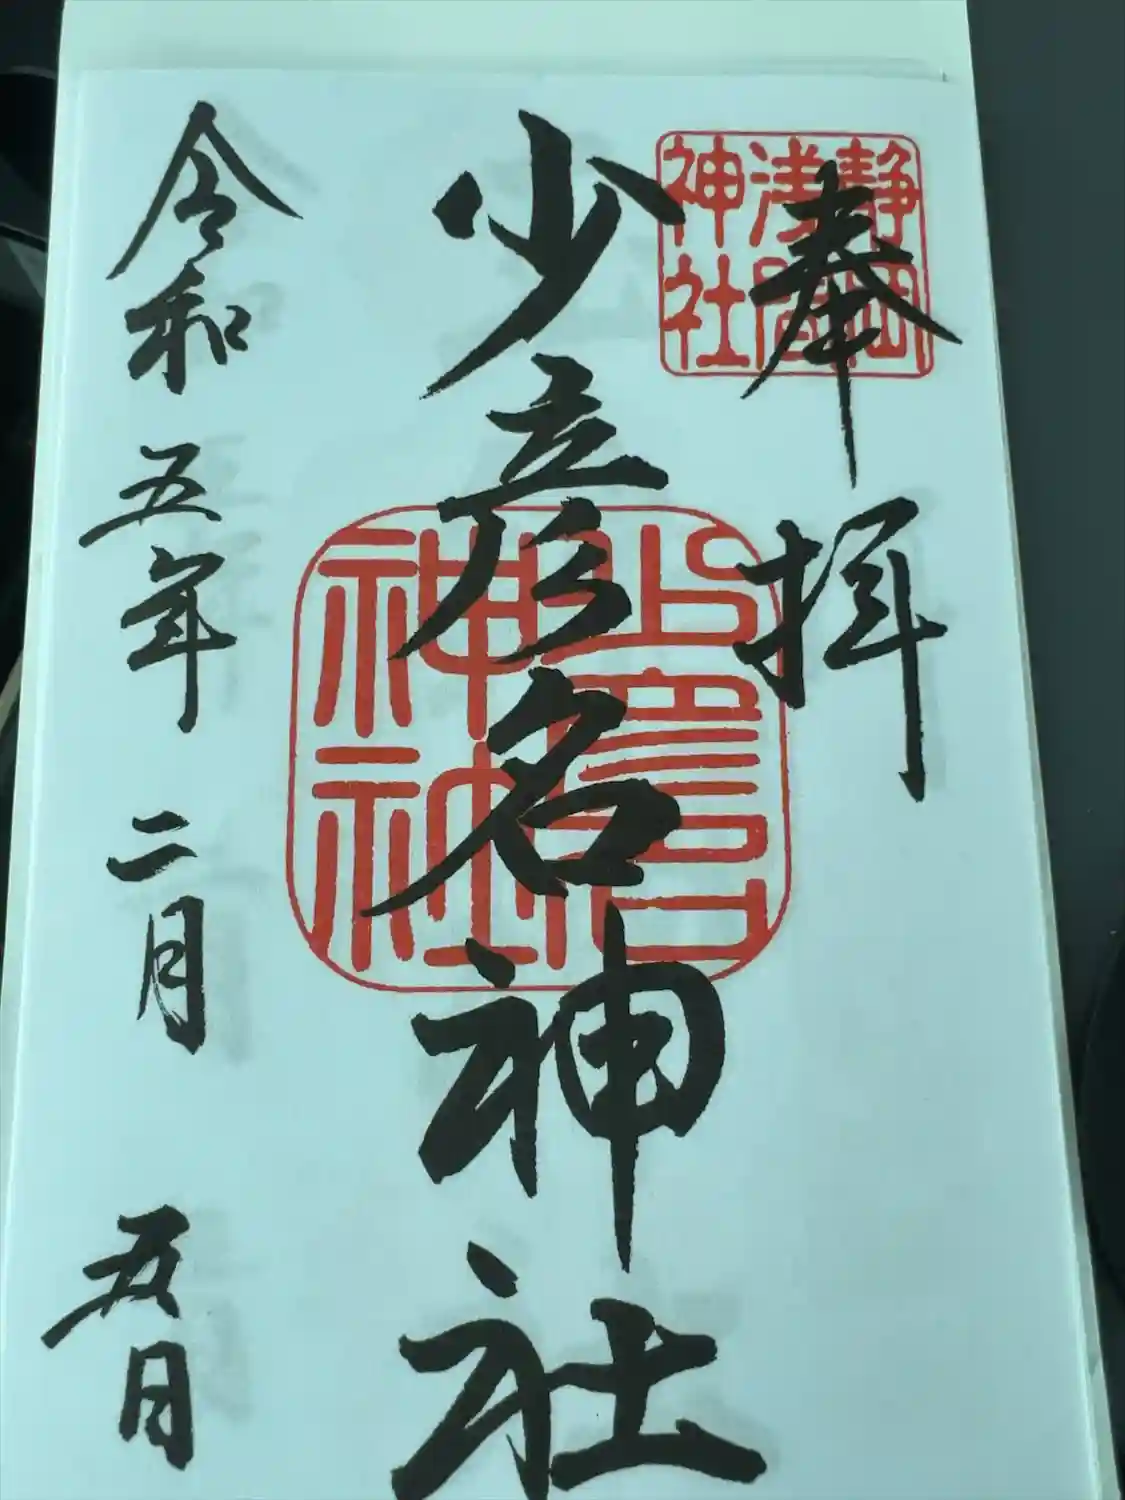 奉拝
静岡
浅間
神社
少彦名神社
少彦名
神社
令和五年二月五日